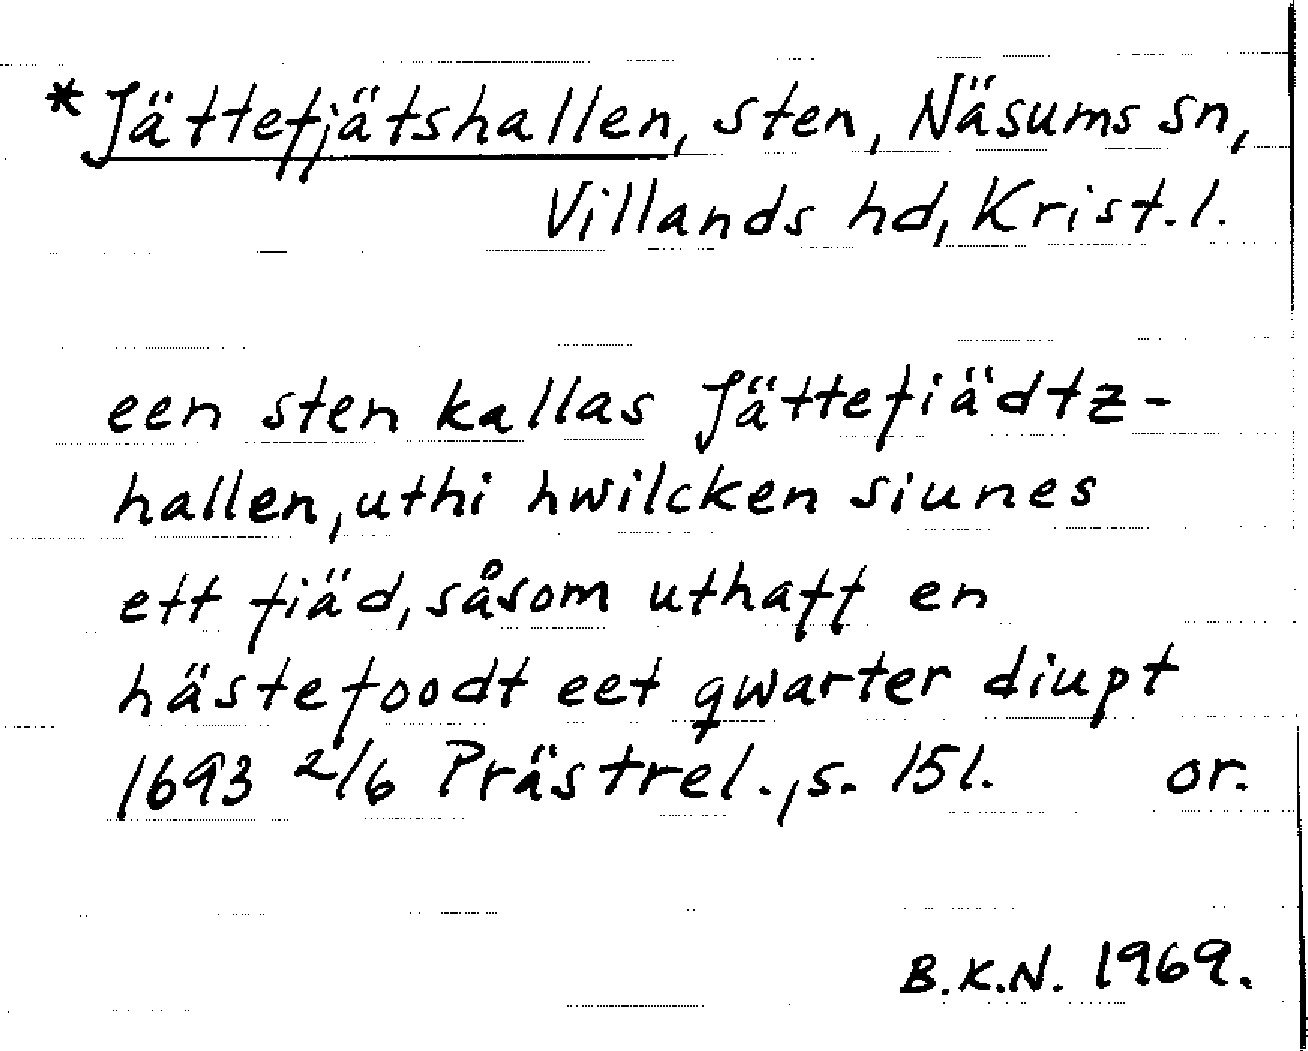 *Jättefjätshallen, sten, Näsums sn,
Villands hd, Krist.l.
een sten kallas Jättefiädtz-
hallen, uthi hwilcken siunes
ett fiäd, såsom uthaff en
hästefoodt eet qwarter diupt
1693 2/6 Prästrel., s. 151. or.
B.K.N. 1969.